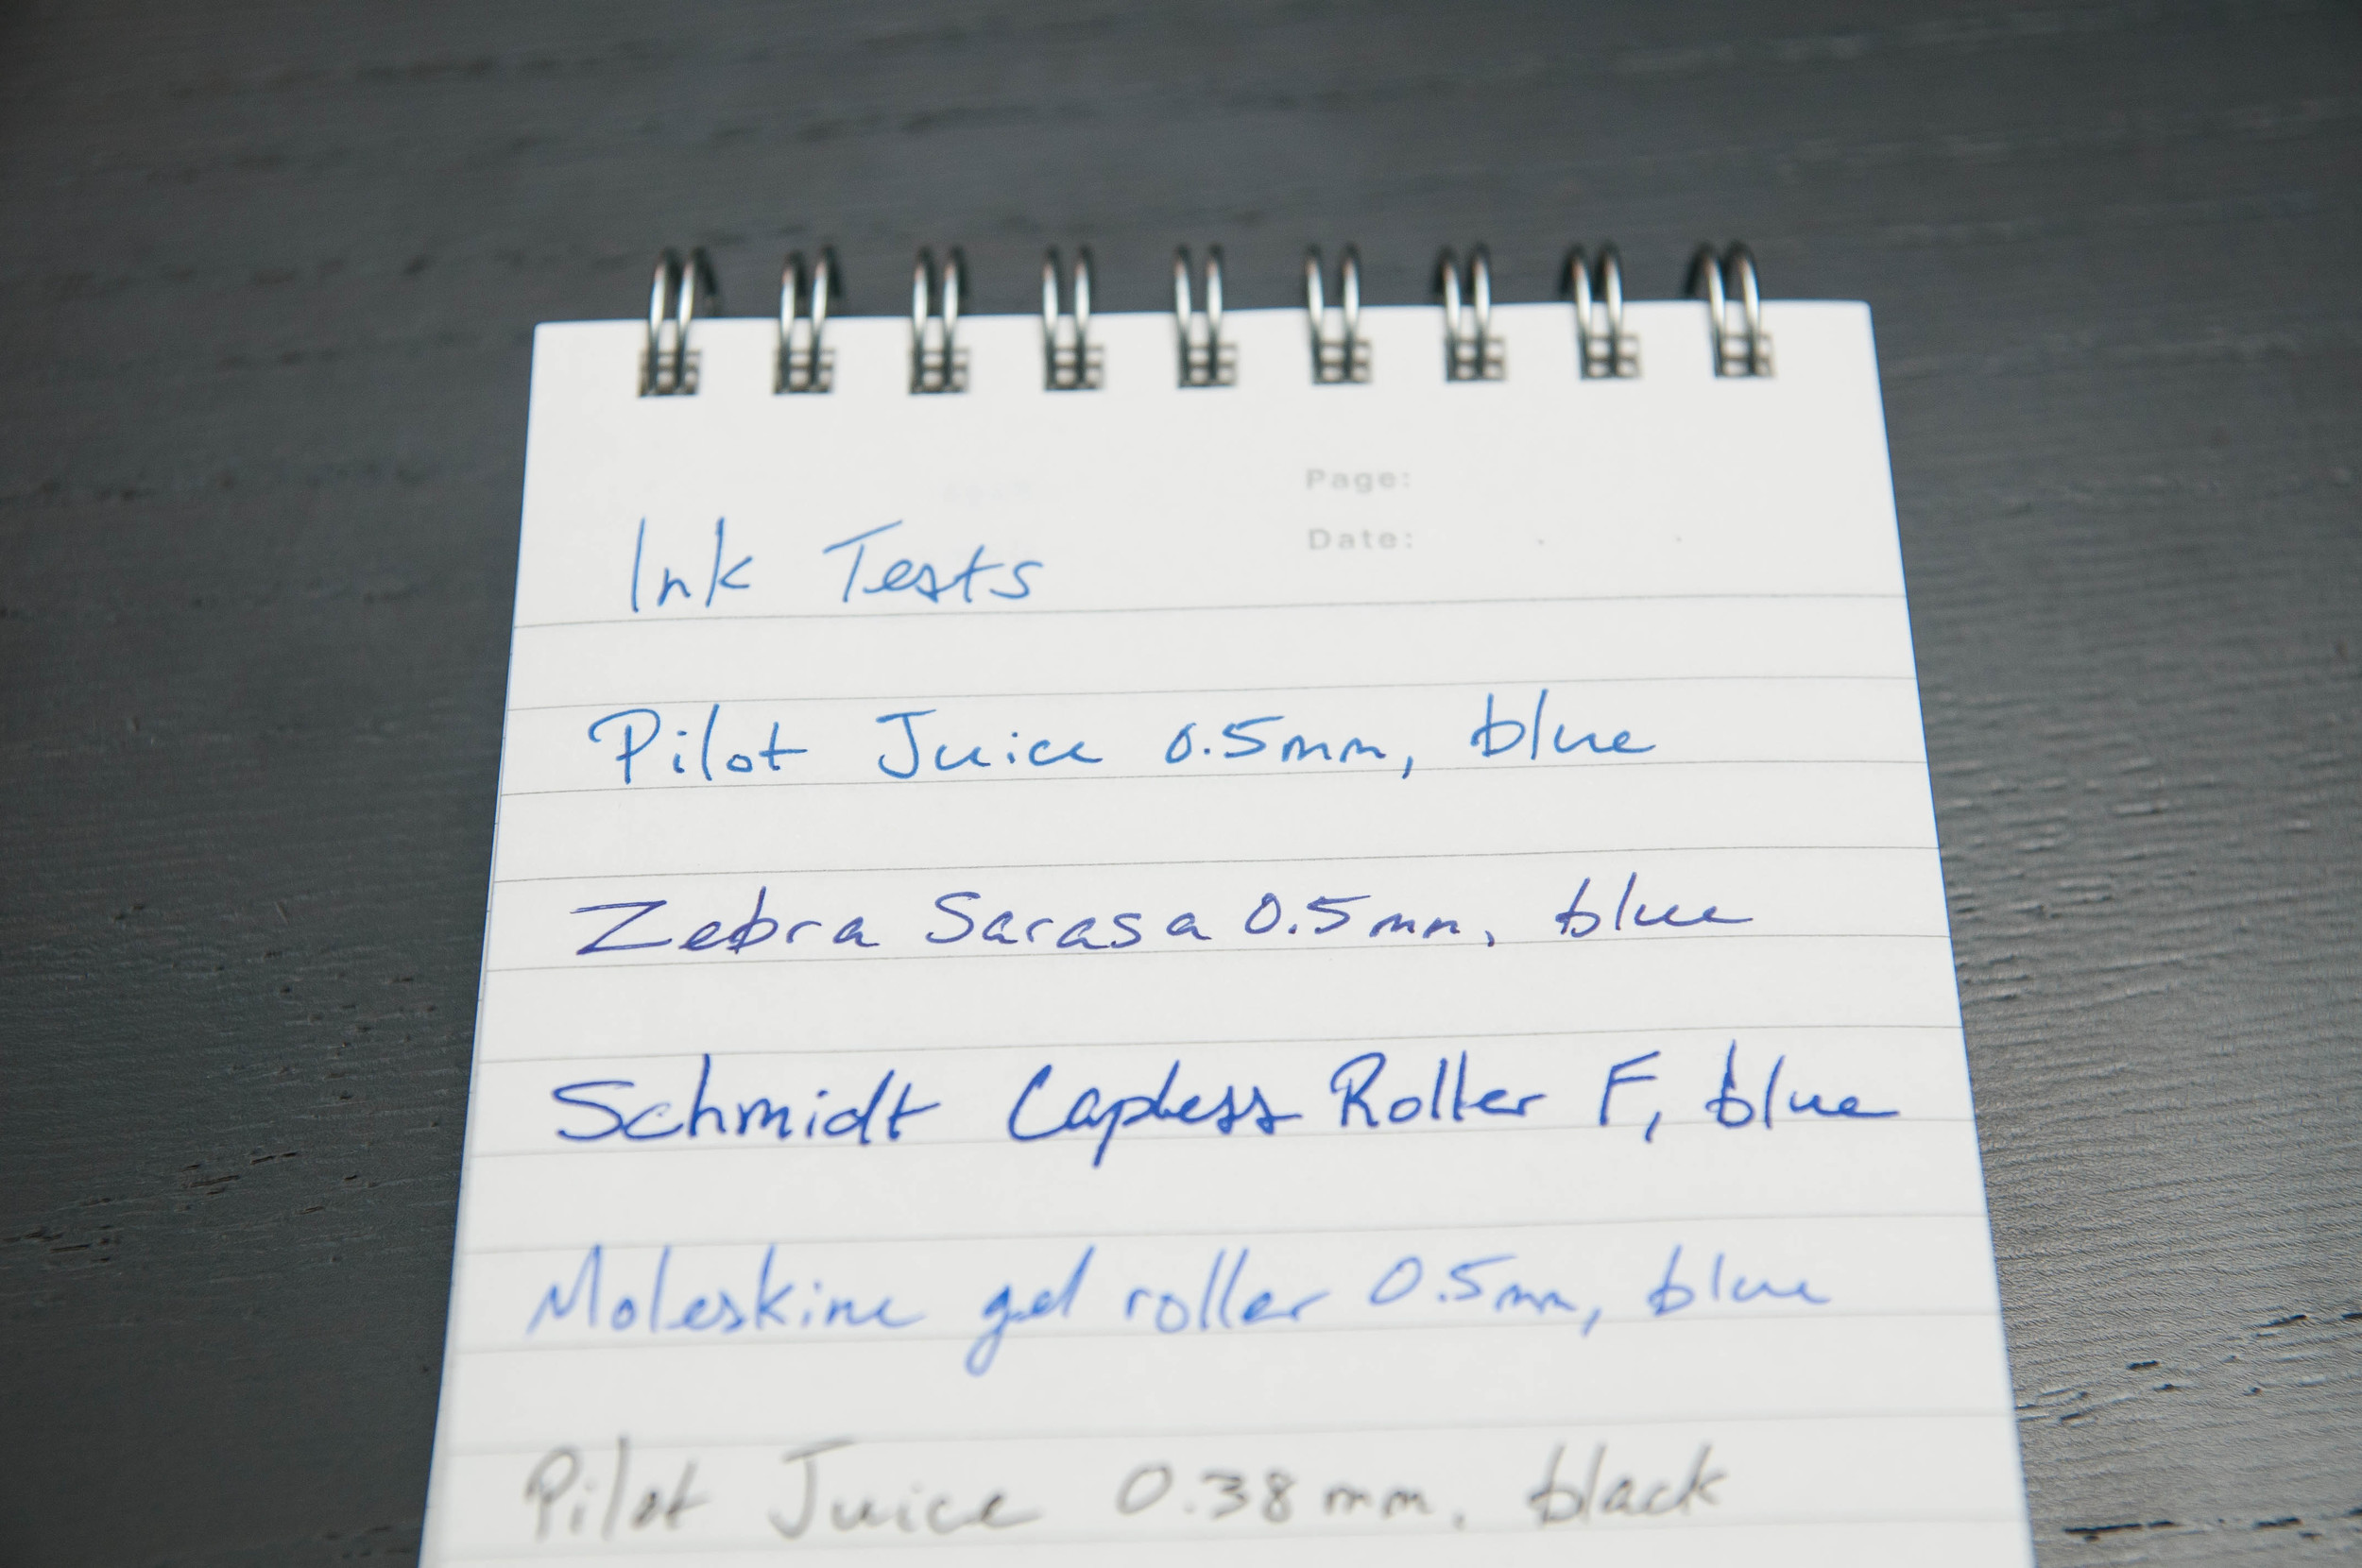 Page:
Date:
Ink Tests
Pilot Juice 0.5mm, blue
Zebra Sarasa 0.5mm, blue
Schmidt Capless Roller F, blue
Moleskine gel roller 0.5mm, blue
Pilot Juice 0.38mm, black